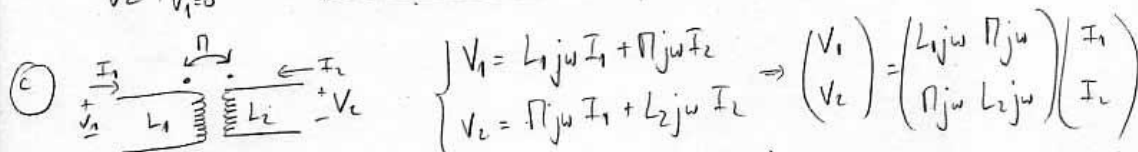 V₁=0
ⓒ I₁ M I₂ + V₁ - L₁ L₂ + V₂ -
{ V₁ = L₁jω I₁ + Mjω I₂
V₂ = Mjω I₁ + L₂jω I₂
⇒ (V₁ V₂) = (L₁jω Mjω Mjω L₂jω) (I₁ I₂)